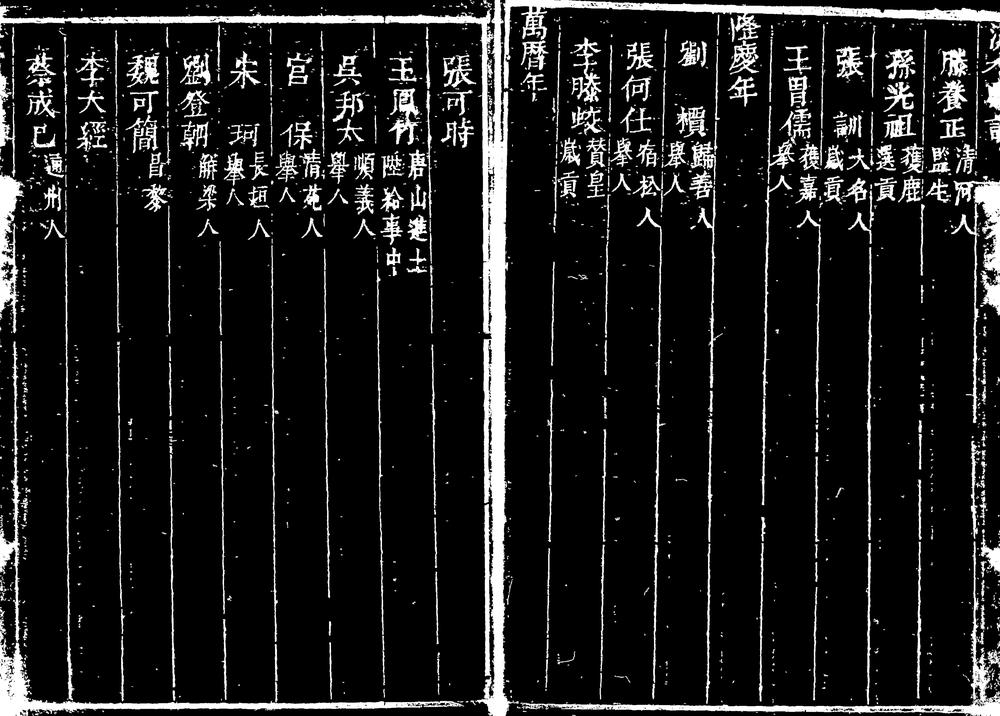 滕養正 清河人 監生
孫光祖 獲鹿 選貢
張訓 大名人 歲貢
王胃儒 獲嘉人 舉人
隆慶年
劉櫝 歸善人 舉人
張何仕 宿松人 舉人
李滕蛟 贊皇 歲貢
萬曆年
張可時
王鳳竹 唐山進士 陞給事中
吳邦太 順義人 舉人
官保 清苑人 舉人
宋珂 長垣人 舉人
劉登朝 解梁人
魏可簡 昌黎
李大經
蔡成己 通州人